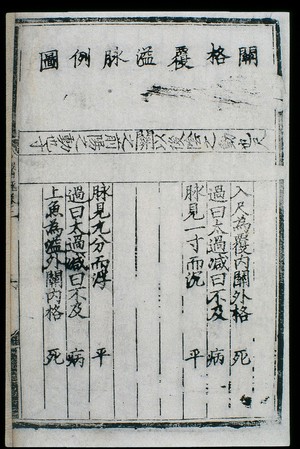 關格覆溢脉例圖
入尺為覆内關外格　死
過曰太過減曰不及　病
脉見一寸而沉　平
脉見九分而浮　平
過曰太過減曰不及　病
上魚為溢外關内格　死